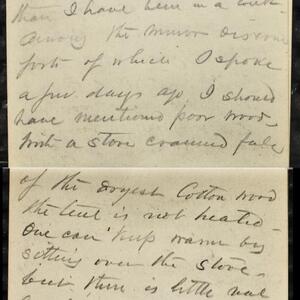 than I have been in a week
Among the minor discom
forts of which I spoke
a few days ago I should
have mentioned poor wood
With a stove crammed full
of the dryest Cotton wood
the tent is not heated
One can keep warm by
sitting over the stove
but there is little